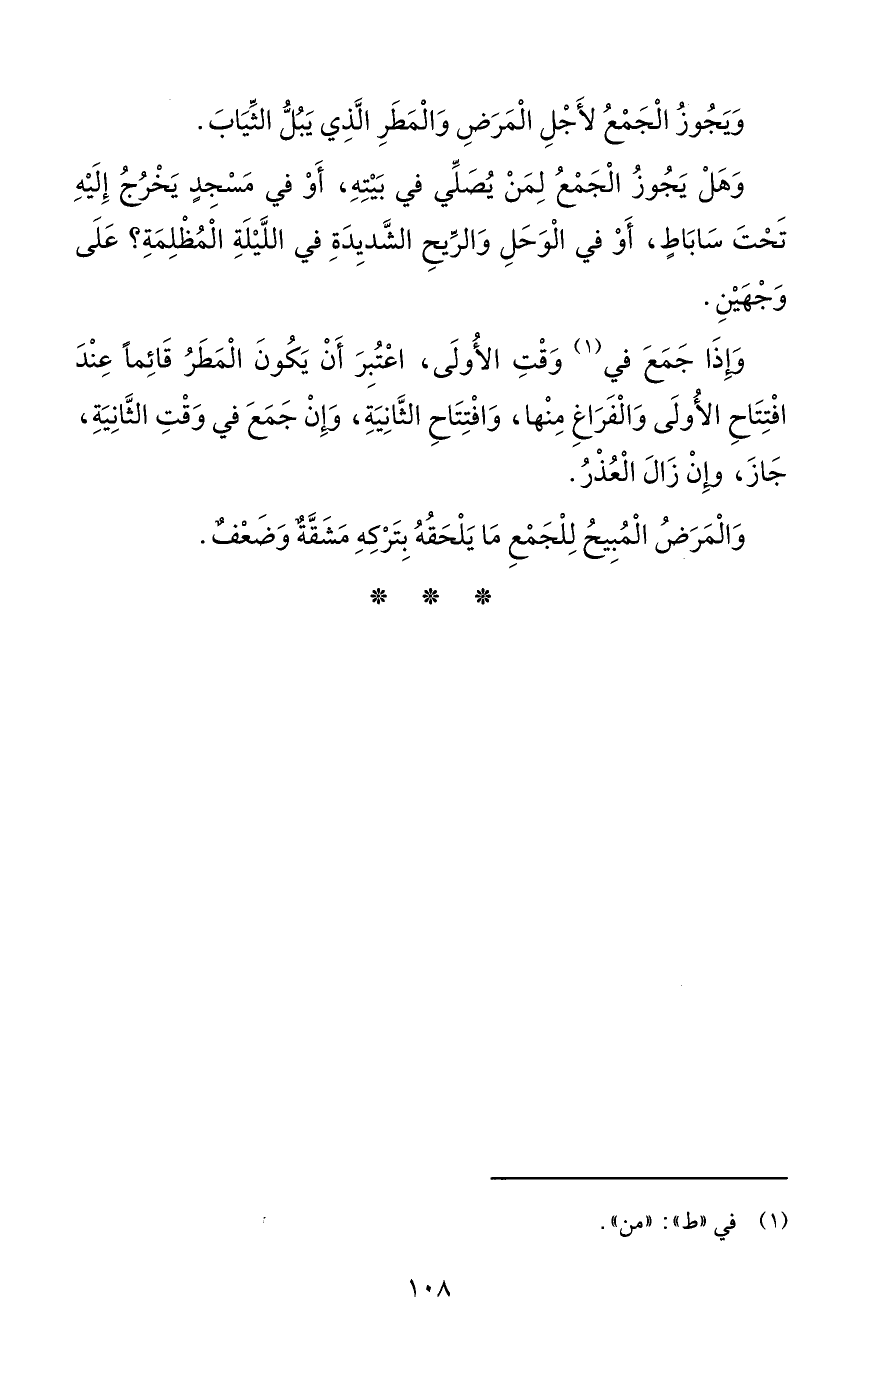 وَيَجُوزُ الْجَمْعُ لأَجْلِ الْمَرَضِ وَالْمَطَرِ الَّذِي يَبُلُّ الثِّيَابَ.
وَهَلْ يَجُوزُ الْجَمْعُ لِمَنْ يُصَلِّي في بَيْتِهِ، أَوْ في مَسْجِدٍ يَخْرُجُ إِلَيْهِ
تَحْتَ سَابَاطٍ، أَوْ في الْوَحَلِ وَالرِّيحِ الشَّدِيدَةِ في اللَّيْلَةِ الْمُظْلِمَةِ؟ عَلَى
وَجْهَيْنِ.
وَإِذَا جَمَعَ في(١) وَقْتِ الأُولَى، اعْتُبِرَ أَنْ يَكُونَ الْمَطَرُ قَائِماً عِنْدَ
افْتِتَاحِ الأُولَى وَالْفَرَاغِ مِنْها، وَافْتِتَاحِ الثَّانِيَةِ، وَإِنْ جَمَعَ في وَقْتِ الثَّانِيَةِ،
جَازَ، وإِنْ زَالَ الْعُذْرُ.
وَالْمَرَضُ الْمُبِيحُ لِلْجَمْعِ مَا يَلْحَقُهُ بِتَرْكِهِ مَشَقَّةٌ وَضَعْفٌ.
* * *
(١) في «ط»: «من».
١٠٨